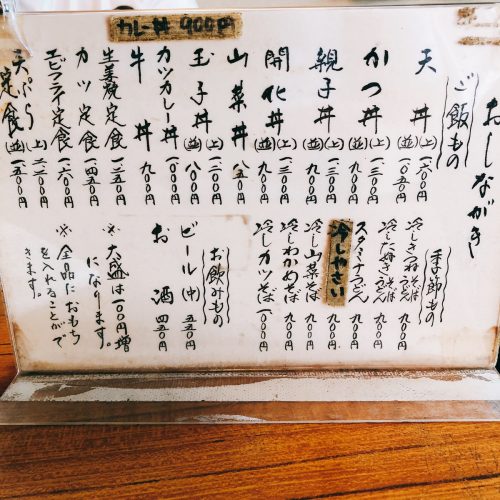 おしながき
ご飯もの
天丼(上)一六〇〇円
(並)一〇五〇円
かつ丼(上)一三〇〇円
(並)九〇〇円
親子丼(上)一三〇〇円
(並)九〇〇円
開化丼(上)一三〇〇円
(並)九〇〇円
山菜丼 八五〇円
玉子丼(上)一二〇〇円
(並)八〇〇円
カツカレー丼 一〇〇〇円
牛丼 九〇〇円
カレー丼 900円
生姜焼定食 一二五〇円
カツ定食 一四五〇円
エビフライ定食 一六〇〇円
天ぷら定食(上)二一〇〇円
(並)一五〇〇円
季節もの
冷しきつねそばうどん 九〇〇円
冷したぬきそばうどん 九〇〇円
スタミナうどん 九〇〇円
冷しやさい
冷し山菜そば 九〇〇円
冷しわかめそば 九〇〇円
冷しカツそば 一〇〇〇円
お飲みもの
ビール(中)五五〇円
お酒 四五〇円
※大盛は一〇〇円増
になります。
※全品におもち
を入れることがで
きます。